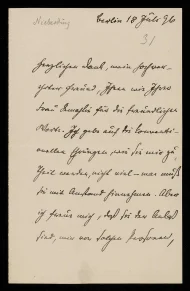 Berlin 18 Juli 96
31
Herzlichen Dank, mein hochver-
ehrter Freund, Ihnen wie Ihrer
Frau Gemahlin für die freundlichen
Worte. Ich gebe auf die
wie sie mir zu
Theil werden, nicht viel – man muß
sie mit Anstand hinnehmen. Aber
ich freue mich, daß Sie der Anlaß
sind, mir von solchen Personen,